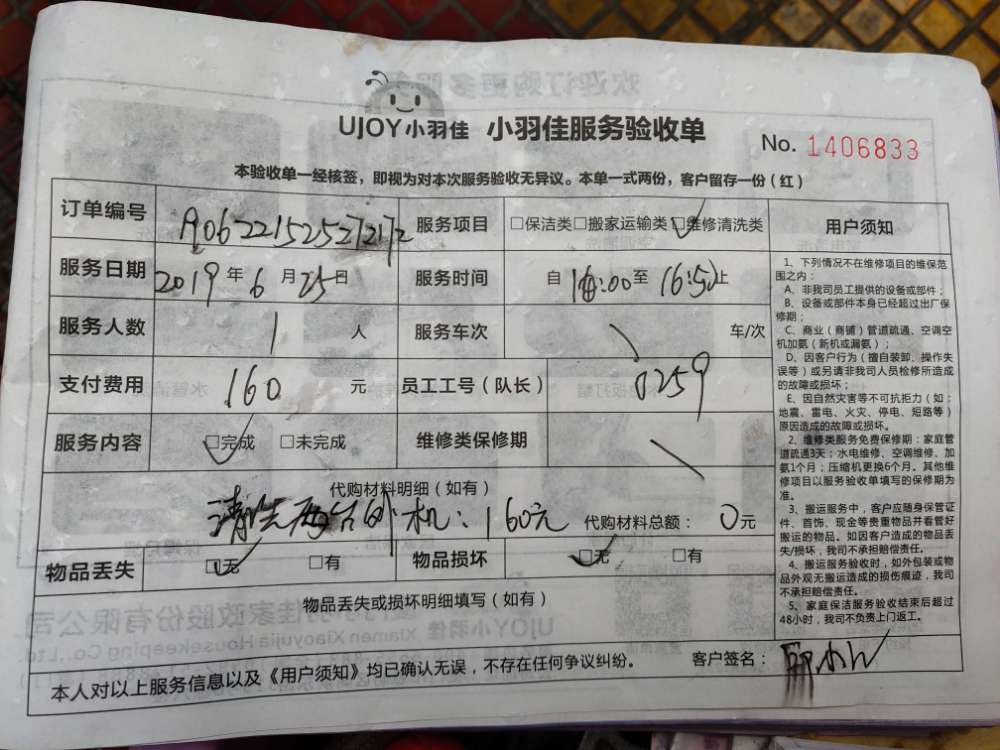 UJOY小羽佳 小羽佳服务验收单
No. 1406833
本验收单一经核签，即视为对本次服务验收无异议。本单一式两份，客户留存一份（红）
订单编号 服务项目 □保洁类□搬家运输类□维修清洗类 用户须知
服务日期 2019年6月25日 服务时间 自 16:00 至 16:50 止
服务人数 1 人 服务车次 车/次
支付费用 160 元 员工工号（队长） 0259
服务内容 □完成 □未完成 维修类保修期
代购材料明细（如有）
清洗两台外机：160元 代购材料总额： 0元
物品丢失 □无 □有 物品损坏 □无 □有
物品丢失或损坏明细填写（如有）
1、下列情况不在维修项目的维保范
围之内：
A、非我司员工提供的设备或部件；
B、设备或部件本身已经超过出厂保
修期；
C、商业（商铺）管道疏通、空调空
机加氨（新机或漏氨）；
D、因客户行为（擅自装卸、操作失
误等）或另请非我司人员检修所造成
的故障或损坏；
E、因自然灾害等不可抗拒力（如：
地震、雷电、火灾、停电、短路等）
原因造成的故障或损坏。
2、维修类服务免费保修期：家庭管
道疏通3天；水电维修、空调维修、加
氨1个月；压缩机更换6个月。其他维
修项目以服务验收单填写的保修期为
准。
3、搬运服务中，客户应随身保管证
件、首饰、现金等贵重物品并看管好
搬运的物品。如因客户造成的物品丢
失/损坏，我司不承担赔偿责任。
4、搬运服务验收时，如外包装或物
品外观无搬运造成的损伤痕迹，我司
不承担赔偿责任。
5、家庭保洁服务验收结束后超过
48小时，我司不负责上门返工。
本人对以上服务信息以及《用户须知》均已确认无误，不存在任何争议纠纷。 客户签名：